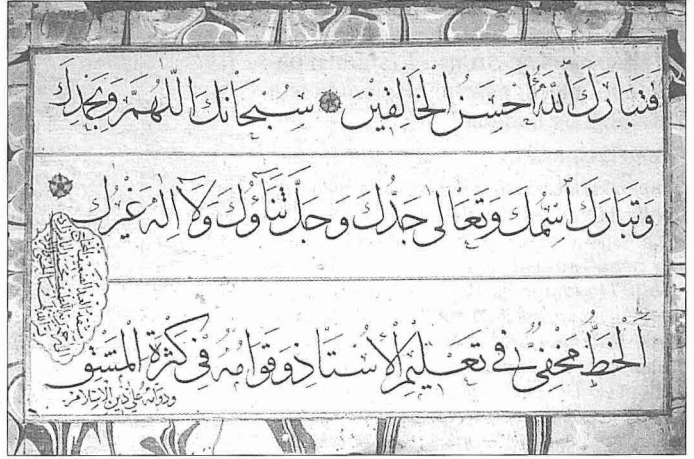 فَتَبَارَكَ ٱللَّهُ أَحْسَنُ الْخَالِقِينَ سُبْحَانَكَ اللّٰهُمَّ وَبِحَمْدِكَ
وَتَبَارَكَ ٱسْمُكَ وَتَعَالىٰ جَدُّكَ وَجَلَّ ثَنَآؤُكَ وَلَآ اِلٰهَ غَيْرُكَ
اَلْخَطُّ مَخْفِىٌّ فِى تَعْلِيْمِ الْاُسْتَاذِ وَقَوَامُهُ فِى كَثْرَةِ الْمَشْقِ
ودوامه على دين الاسلام